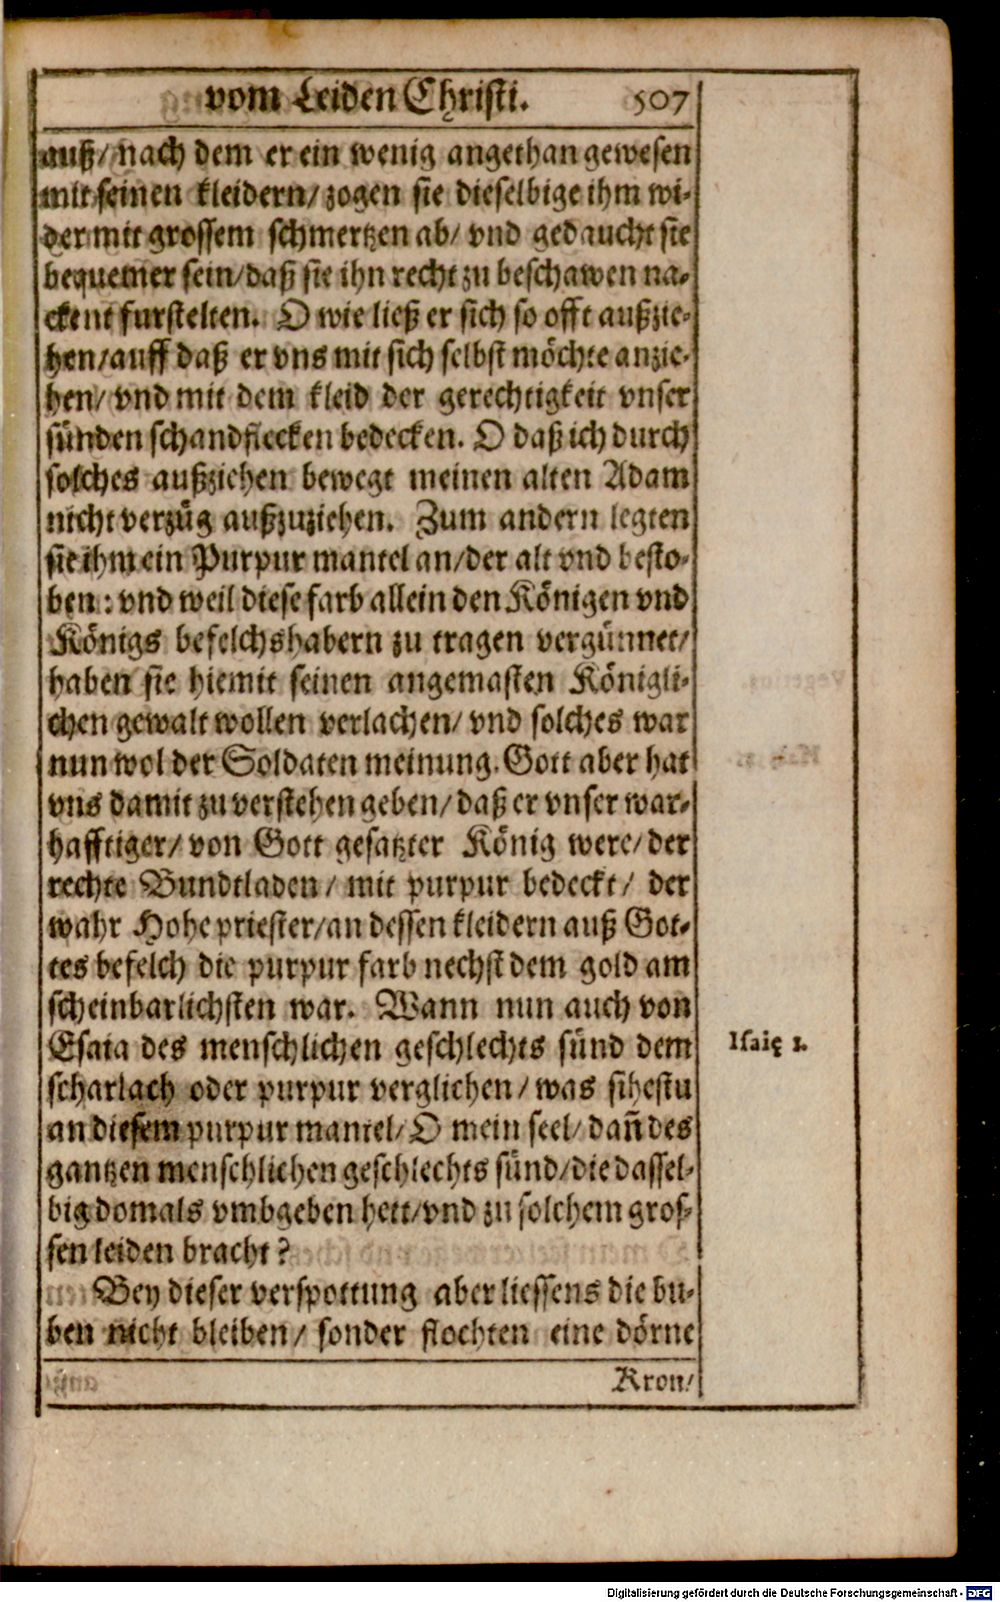 vom Leiden Christi. 507
auß/ nach dem er ein wenig angethan gewesen
mit seinen kleidern/ zogen sie dieselbige ihm wi-
der mit grossem schmertzen ab/ vnd gedaucht sie
bequemer sein/ daß sie ihn recht zu beschawen na-
ckent furstelten. O wie ließ er sich so offt außzie-
hen/ auff daß er vns mit sich selbst möchte anzie-
hen/ vnd mit dem kleid der gerechtigkeit vnser
sünden schandflecken bedecken. O daß ich durch
solches außziehen bewegt meinen alten Adam
nicht verzüg außzuziehen. Zum andern legten
sie ihm ein Purpur mantel an/ der alt vnd besto-
ben: vnd weil diese farb allein den Königen vnd
Königs befelchshabern zu tragen vergünnet/
haben sie hiemit seinen angemasten Königli-
chen gewalt wollen verlachen/ vnd solches war
nun wol der Soldaten meinung. Gott aber hat
vns damit zu verstehen geben/ daß er vnser war-
hafftiger/ von Gott gesatzter König were/ der
rechte Bundtladen/ mit purpur bedeckt/ der
wahr Hohepriester/ an dessen kleidern auß Got-
tes befelch die purpur farb nechst dem gold am
scheinbarlichsten war. Wann nun auch von
Esaia des menschlichen geschlechts sünd dem
scharlach oder purpur verglichen/ was sihestu
an diesem purpur mantel/ O mein seel/ dañ des
gantzen menschlichen geschlechts sünd/ die dassel-
big domals vmbgeben hett/ vnd zu solchem gros-
sen leiden bracht?
Bey dieser verspottung aber liessens die bu-
ben nicht bleiben/ sonder flochten eine dörne
Kron/
Isaię 1.
Digitalisierung gefördert durch die Deutsche Forschungsgemeinschaft - DFG